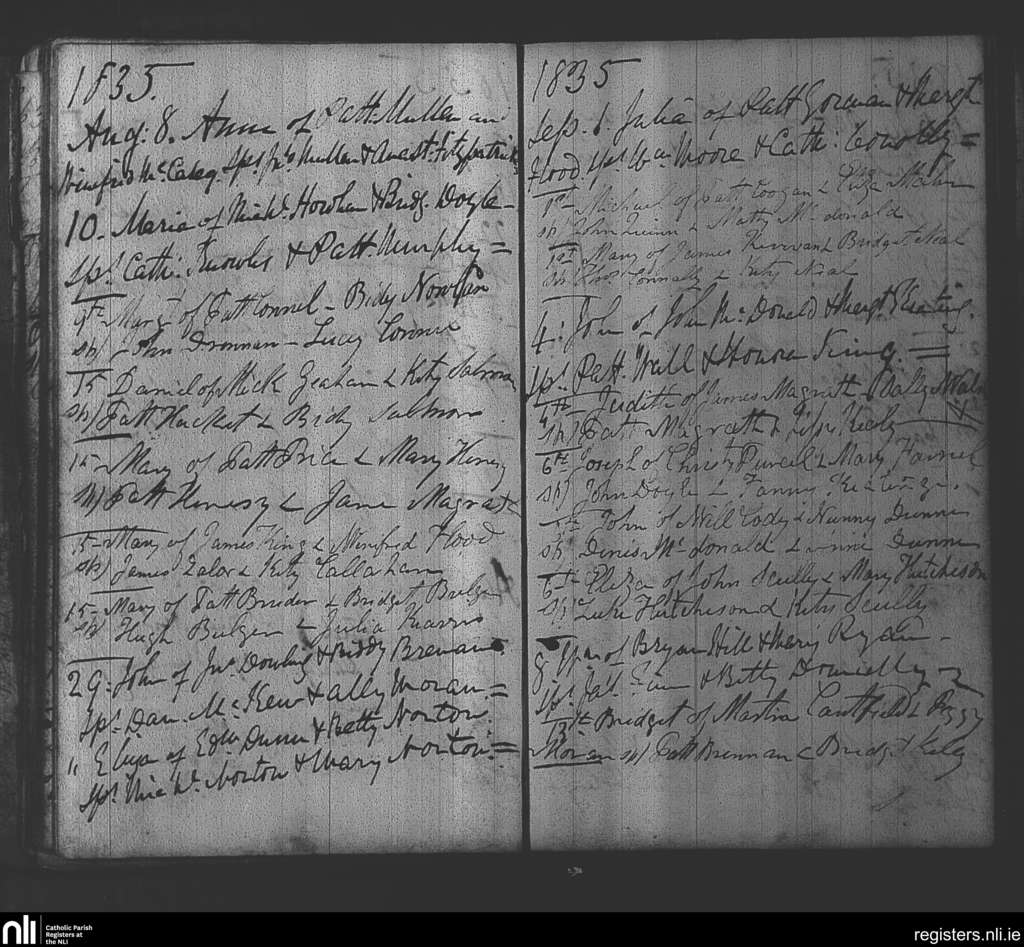 1835.
Aug: 8. Anne of Patt. Mullen and
Winifrid Mc. Sps. Jno. Mullen & Fitzpatrick
10. Maria of Michl. Howlen & Bridg. Doyle -
Sps. Cath: Knowles & Patt. Murphy =
9th Margt of Patt Connel - Bidy Nowlan
sp/ John Drennan - Lucy
15 Daniel of Mick & Kity Salmon
sp/ Patt Hacket & Bridy Salmon
15 - Mary of Patt Price & Mary Henesy
sp/ Patt Henesy & Jane Magrath
15 - Mary of James King & Winifred Flood
sp/ James Lalor & Kity Callahan
15 - Mary of Patt & Bridget Bulger
sp/ Hugh Bulger & Julia
29. John of Jno. Dowling & Biddy Brenan.
Sps. Dan. Mc. & Ally Moran =
" Eliza of Edw. Dunn & Betty Norton.
Sps. Michl. Norton & Mary Norton =
1835
Sep. 1. Julia of Patt Gorman & Margt
Flood Sps. Wm. Moore & Cath: Conolly =
1st - Michael of Patt Coogan & Eliza Maher
sp/ John Quinn & Matty Mc donald
1st Mary of James & Bridget Neal
sp/ Thos. Connally & Kity Neal
4: John of John Mc. Donald & Margt. Keating.
Sps. Patt. Wall & Honora King. =
Judith of James Magrath &
sp/ Patt Magrath &
6th Joseph of Christr Purcell & Mary Farrel
sp/ John Doyle & Fanny Keating.
John of Will Cody & Nanny Dunne
sp/ Denis Mc donald & Dunne
6th - Eliza of John Scully & Mary Hutchison
sp/ Luke Hutchison & Kity Scully
8 of Bryan Hill & Mary Ryan -
Sps. Jas. & Betty Donnelly -
13th Bridget of Martin Cantfield & Peggy
Moran sp/ Patt Brennan & Bridget Kely
nli
Catholic Parish
Registers at
the NLI
registers.nli.ie